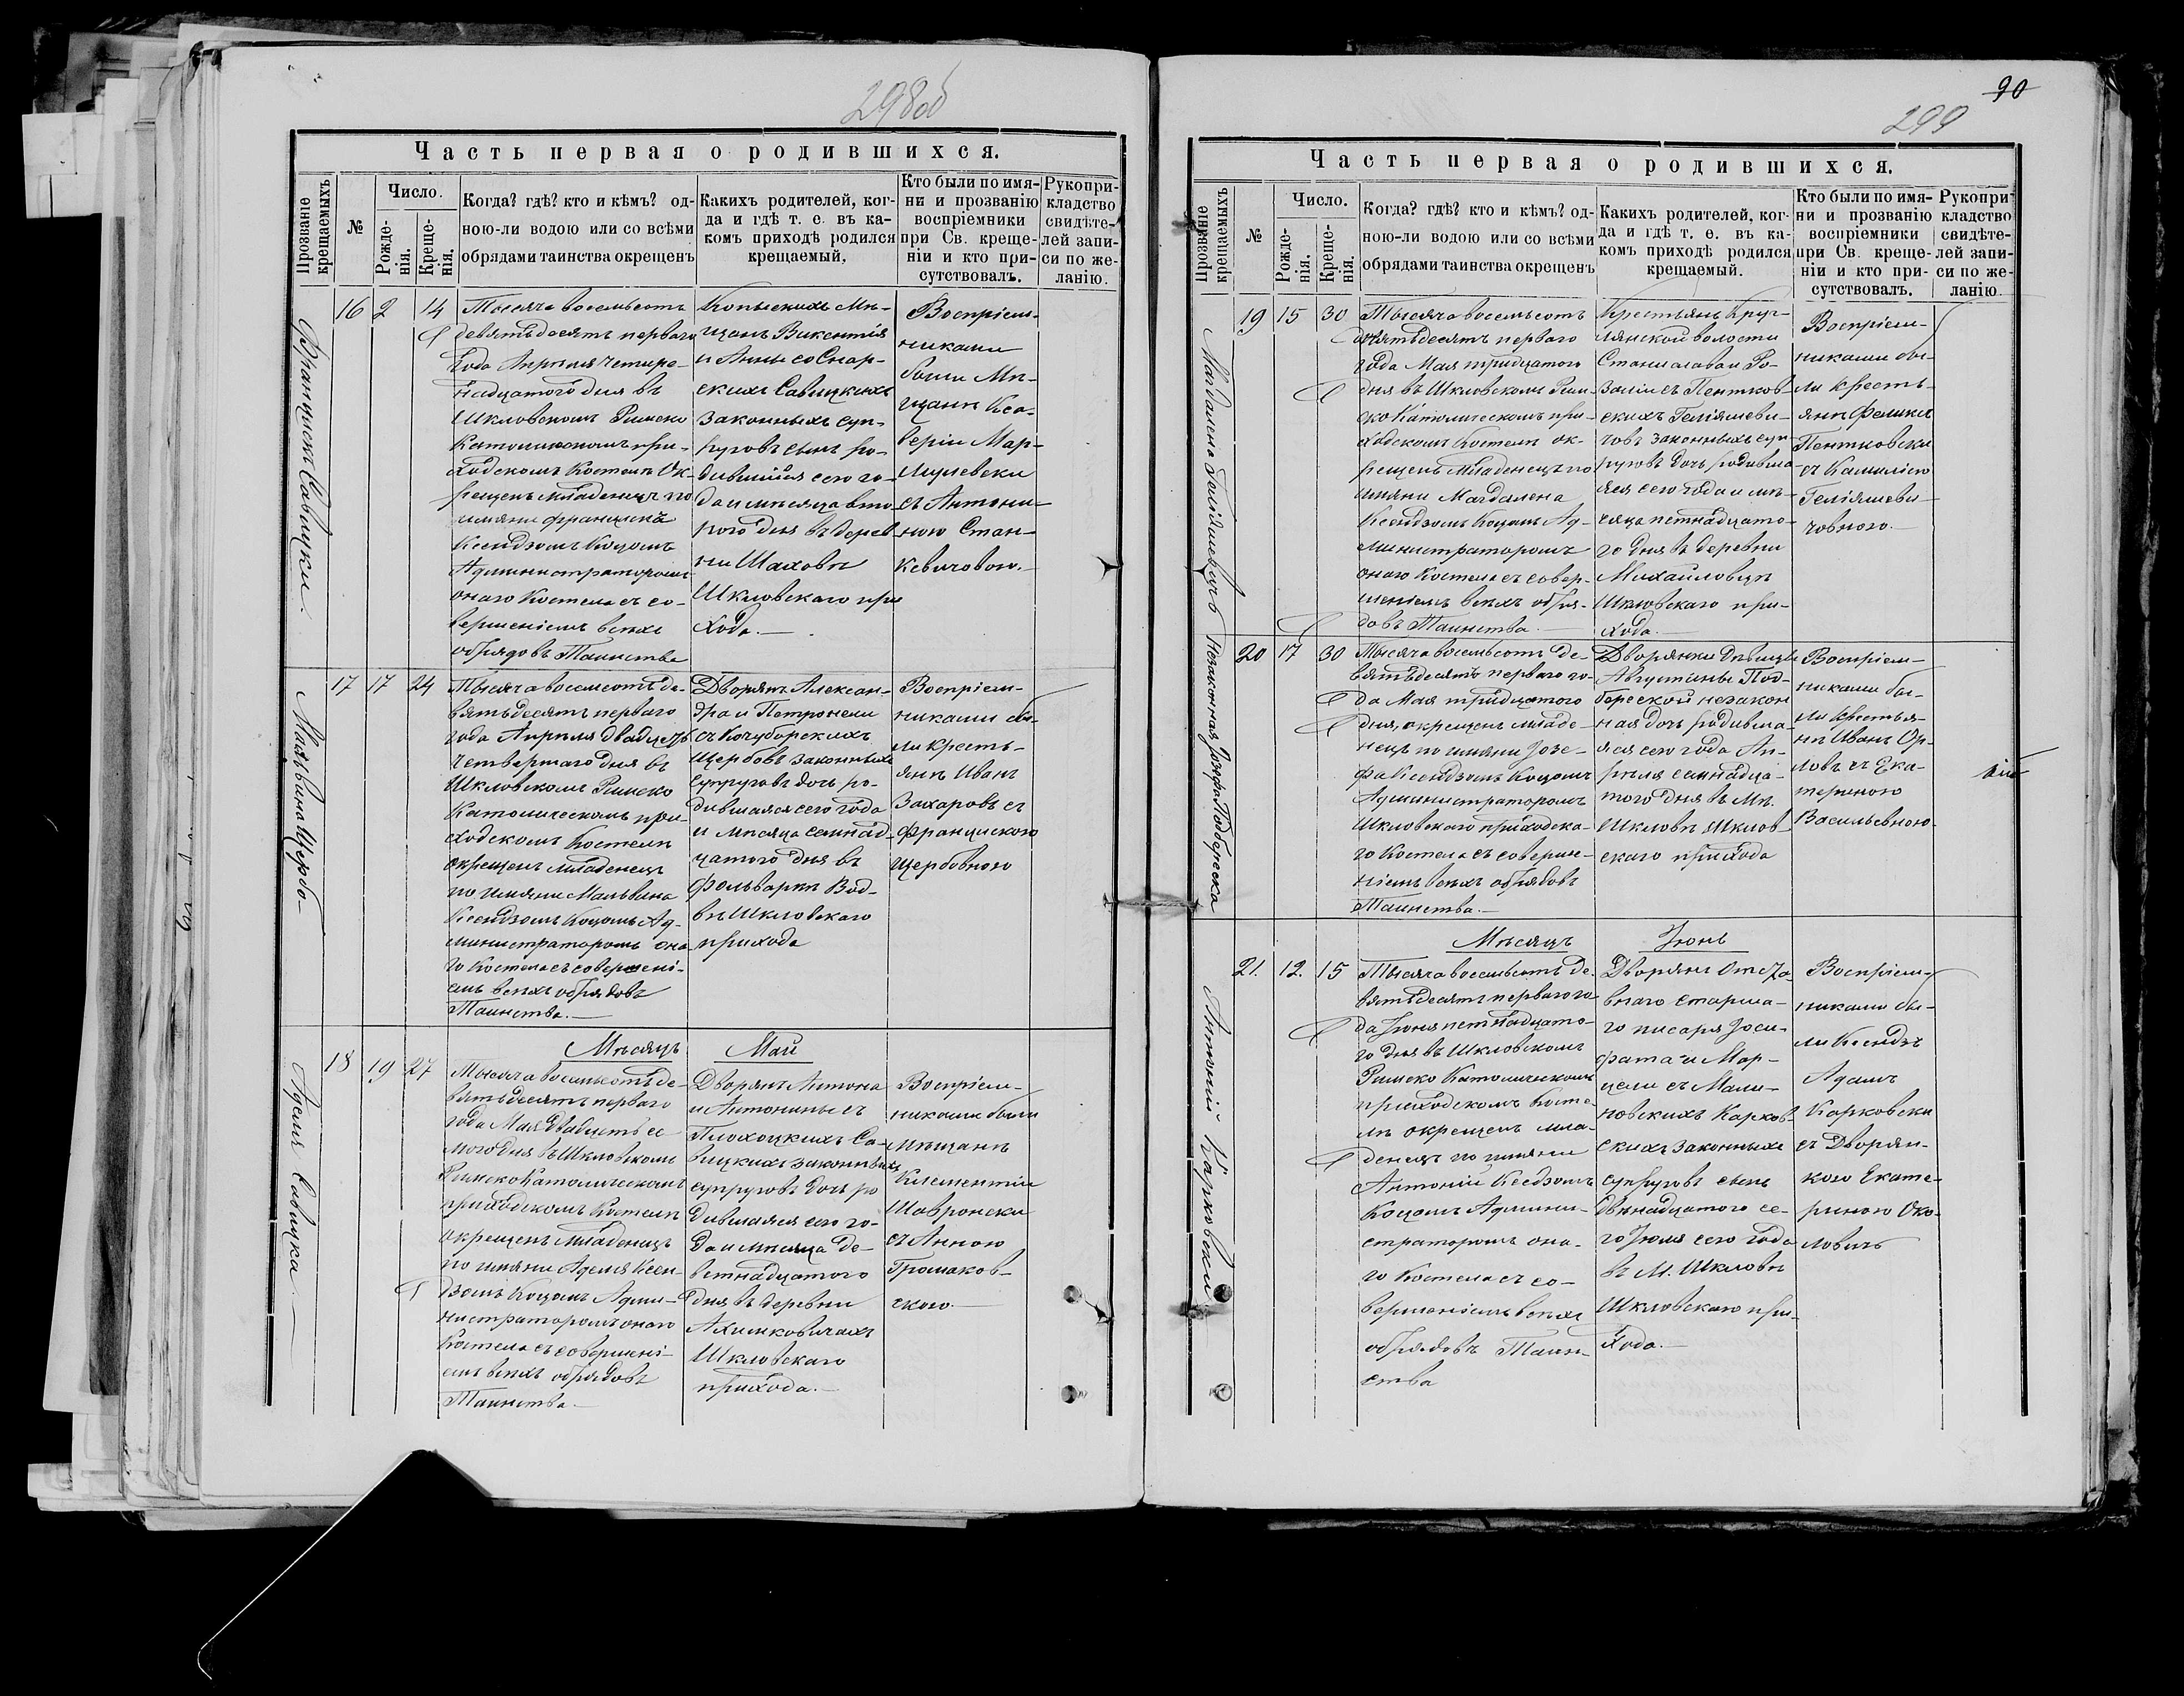 298об
Часть первая о родившихся.
Прозваніе крещаемыхъ
№
Число.
Рожде-
нія.
Креще-
нія.
Когда? гдѣ? кто и кѣмъ? од-
ною-ли водою или со всѣми
обрядами таинства окрещенъ
Какихъ родителей, ког-
да и гдѣ т. е. въ ка-
комъ приходѣ родился
крещаемый.
Кто были по имя-
ни и прозванію
воспріемники
при Св. креще-
ніи и кто при-
сутствовалъ.
Рукопри-
кладство
свидѣте-
лей запи-
си по же-
ланію.
Францискъ Савицки.
16 2 14
Тысяча восемьсотъ
девятьдесятъ перваго
года Апрѣля четыре-
надцатого дня въ
Шкловскомъ Римско
Католическомъ при-
ходскомъ Костелѣ Ок-
рещенъ младенецъ по
имяни Францискъ
Ксендзомъ Коцомъ
Администраторомъ
онаго Костела съ со-
вершеніемъ всѣхъ
обрядовъ Таинства
Копыскихъ Мѣ-
щанъ Викентія
и Анны со Снар-
скихъ Савицкихъ
законныхъ суп-
руговъ сынъ ро-
дившійся сего го-
да и мѣсяца вто-
рого дня въ дерев-
ни Шаховѣ
Шкловскаго при
хода.
Воспріем-
никами
были Мѣ-
щанѣ Кса-
верій Мар-
цишевски
съ Антони-
ною Стан-
кевичовою.
Мальвина Щербо
17 17 24
Тысяча восемсотъ де-
вятьдесятъ перваго
года Апрѣля двадцать
четвертаго дня въ
Шкловскомъ Римско
Католическомъ при
ходскомъ Костелѣ
окрещенъ младенецъ
по имяни Мальвина
Ксендзомъ Коцомъ Ад-
министраторомъ она
го Костела съ совершені-
емъ всѣхъ обрядовъ
Таинства.
Дворянъ Алексан-
дра и Петронели
съ Кочуборскихъ
Щербовъ законныхъ
супруговъ дочь ро-
дившаяся сего года
и мѣсяца семнад-
цатого дня въ
фольваркѣ Вод-
вѣ Шкловскаго
прихода
Воспріем-
никами бы-
ли кресть-
янѣ Иванъ
Захаровъ съ
Францискою
Щербовною
Мѣсяцъ Май
Аделя Савицка.
18 19 27
Тысяча восемьсотъ де-
вятьдесятъ перваго
года Мая двадцать се
мого дня въ Шкловскомъ
Римско Католическомъ
приходскомъ Костелѣ
окрещенъ младенецъ
по имяни Аделя Ксен-
дзомъ Коцомъ Адми-
нистраторомъ онаго
Костела съ совершені-
емъ всѣхъ обрядовъ
Таинства.
Дворянъ Антона
и Антонины съ
Плохоцкихъ Са-
вицкихъ законныхъ
супруговъ дочь ро
дившаяся сего го-
да и мѣсяца де-
вятнадцатого
дня въ деревни
Ахимковичахъ
Шкловскаго
прихода.
Воспріем-
никами были
мѣщанѣ
Клементій
Шавронски
съ Анною
Громаков-
скою.
90
299
Часть первая о родившихся.
Прозваніе крещаемыхъ
№
Число.
Рожде-
нія.
Креще-
нія.
Когда? гдѣ? кто и кѣмъ? од-
ною-ли водою или со всѣми
обрядами таинства окрещенъ
Какихъ родителей, ког-
да и гдѣ т. е. въ ка-
комъ приходѣ родился
крещаемый.
Кто были по имя-
ни и прозванію
воспріемники
при Св. креще-
ніи и кто при-
сутствовалъ.
Рукопри-
кладство
свидѣте-
лей запи-
си по же-
ланію.
Магдалена Геліяшевичъ
19 15 30
Тысяча восемьсотъ
девятьдесятъ перваго
года Мая тридцатого
дня въ Шкловскомъ Рим-
ско Католическомъ при-
ходскомъ Костелѣ ок-
рещенъ младенецъ по
имяни Магдалена
Ксендзомъ Коцомъ Ад-
министраторомъ
онаго Костела съ совер-
шеніемъ всѣхъ обря-
довъ Таинства.
Крестьянъ Круг-
лянской волости
Станислава и Ро-
заліи съ Пентков-
скихъ Геліяшеви-
човъ законныхъ суп-
руговъ дочь родивша-
яся сего года и мѣ-
сяца петнадцато-
го дня въ деревни
Михайловцѣ
Шкловскаго при-
хода.
Воспріем-
никами бы-
ли кресть-
янѣ Феликсъ
Пентковски
съ Камилією
Геліяшеви-
човною.
Незаконная Іозефа Подберезска
20 17 30
Тысяча восемьсотъ де-
вятьдесятъ перваго го-
да Мая тридцатого
дня, окрещенъ младе-
нецъ по имяни Іозе-
фа Ксендзомъ Коцомъ
Администраторомъ
Шкловскаго приходска-
го Костела съ соверше-
ніемъ всѣхъ обрядовъ
Таинства.
Дворянки дѣвицы
Августины Под-
березской незакон
ная дочь родивша-
яся сего года Ап-
рѣля семнадца-
того дня въ Мѣ.
Шкловѣ Шклов-
скаго прихода
Воспріем-
никами бы-
ли крестья-
нѣ Иванъ Ор-
ловъ съ Ека-
териною
Васильевною
Мѣсяцъ Іюнь
Антоній Карковски
21. 12. 15
Тысяча восемьсотъ де-
вятьдесятъ перваго го
да Іюня петнадцато-
го дня въ Шкловскомъ
Римско Католическомъ
приходскомъ Косте-
лѣ окрещенъ мла-
денецъ по имяни
Антоній Ксендзомъ
Коцомъ Админи-
страторомъ она-
го Костела съ со-
вершеніемъ всѣхъ
обрядовъ Таин-
ства
Дворянъ Отста
внаго старша-
го писаря Іоси-
фата и Мар-
цели съ Мали-
новскихъ Карков-
скихъ законныхъ
супруговъ сынъ
двѣнадцатого се-
го Іюля сего года
въ М. Шкловѣ
Шкловскаго при-
хода.
Воспріем-
никами бы-
ли Ксендзъ
Адамъ
Карковски
съ Дворян-
кою Екате-
риною Око-
ловичъ